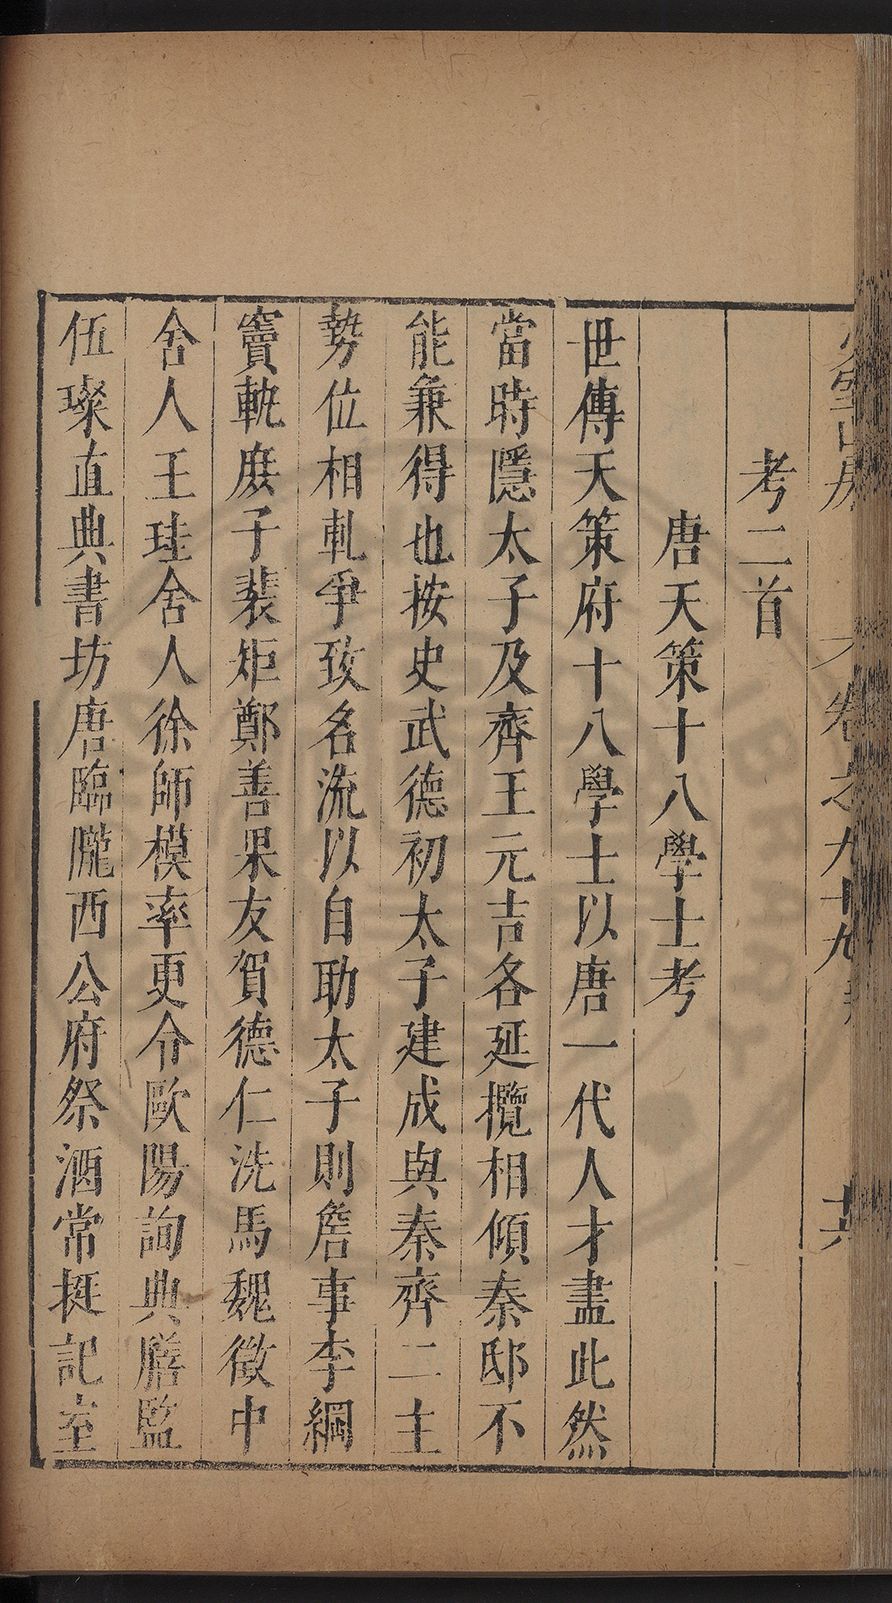 少室山房
卷之九十九
考二首
唐天策十八學士考
世傳天策府十八學士以唐一代人才盡此然
當時隱太子及齊王元吉各延攬相傾秦邸不
能兼得也按史武德初太子建成與秦齊二主
勢位相軋爭致名流以自助太子則詹事李綱
竇軌庶子裴矩鄭善果友賀德仁洗馬魏徵中
舍人王珪舍人徐師模率更令歐陽詢典膳監
伍璨直典書坊唐臨隴西公府祭酒常挺記室